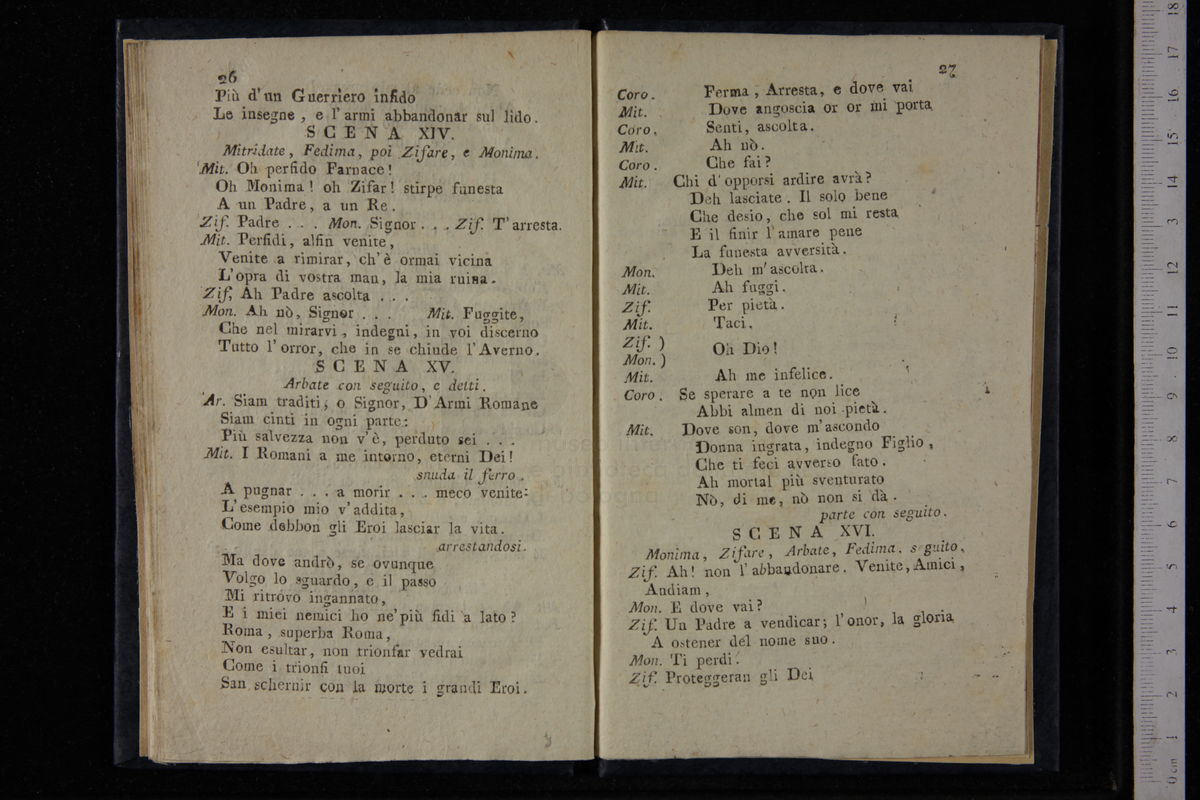 26
Più d'un Guerriero infido
Le insegne, e l'armi abbandonar sul lido.
SCENA XIV.
Mitridate, Fedima, poi Zifare, e Monima.
Mit. Oh perfido Farnace!
Oh Monima! oh Zifar! stirpe funesta
A un Padre, a un Re.
Zif. Padre . . . Mon. Signor . . . Zif. T'arresta.
Mit. Perfidi, alfin venite,
Venite a rimirar, ch'è ormai vicina
L'opra di vostra man, la mia ruina.
Zif. Ah Padre ascolta . . .
Mon. Ah nò, Signor . . . Mit. Fuggite,
Che nel mirarvi, indegni, in voi discerno
Tutto l'orror, che in se chiude l'Averno.
SCENA XV.
Arbate con seguito, e detti.
Ar. Siam traditi, o Signor, D'Armi Romane
Siam cinti in ogni parte:
Più salvezza non v'è, perduto sei . . .
Mit. I Romani a me intorno, eterni Dei!
snuda il ferro.
A pugnar . . . a morir . . . meco venite:
L'esempio mio v'addita,
Come debbon gli Eroi lasciar la vita.
arrestandosi.
Ma dove andrò, se ovunque
Volgo lo sguardo, e il passo
Mi ritróvo ingannato,
E i miei nemici ho ne'più fidi a lato?
Roma, superba Roma,
Non esultar, non trionfar vedrai
Come i trionfi tuoi
San schernir con la morte i grandi Eroi.
27
Coro. Ferma, Arresta, e dove vai
Mit. Dove angoscia or or mi porta
Coro. Senti, ascolta.
Mit. Ah nò.
Coro. Che fai?
Mit. Chi d'opporsi ardire avrà?
Deh lasciate. Il solo bene
Che desio, che sol mi resta
E il finir l'amare pene
La funesta avversità.
Mon. Deh m'ascolta.
Mit. Ah fuggi.
Zif. Per pietà.
Mit. Taci.
Zif. )
Mon. ) Oh Dio!
Mit. Ah me infelice.
Coro. Se sperare a te non lice
Abbi almen di noi pietà.
Mit. Dove son, dove m'ascondo
Donna ingrata, indegno Figlio,
Che ti feci avverso fato.
Ah mortal più sventurato
Nò, di me, nò non si dà.
parte con seguito.
SCENA XVI.
Monima, Zifare, Arbate, Fedima. seguito.
Zif. Ah! non l'abbandonare. Venite, Amici,
Andiam,
Mon. E dove vai?
Zif. Un Padre a vendicar; l'onor, la gloria
A ostener del nome suo.
Mon. Ti perdi.
Zif. Proteggeran gli Dei